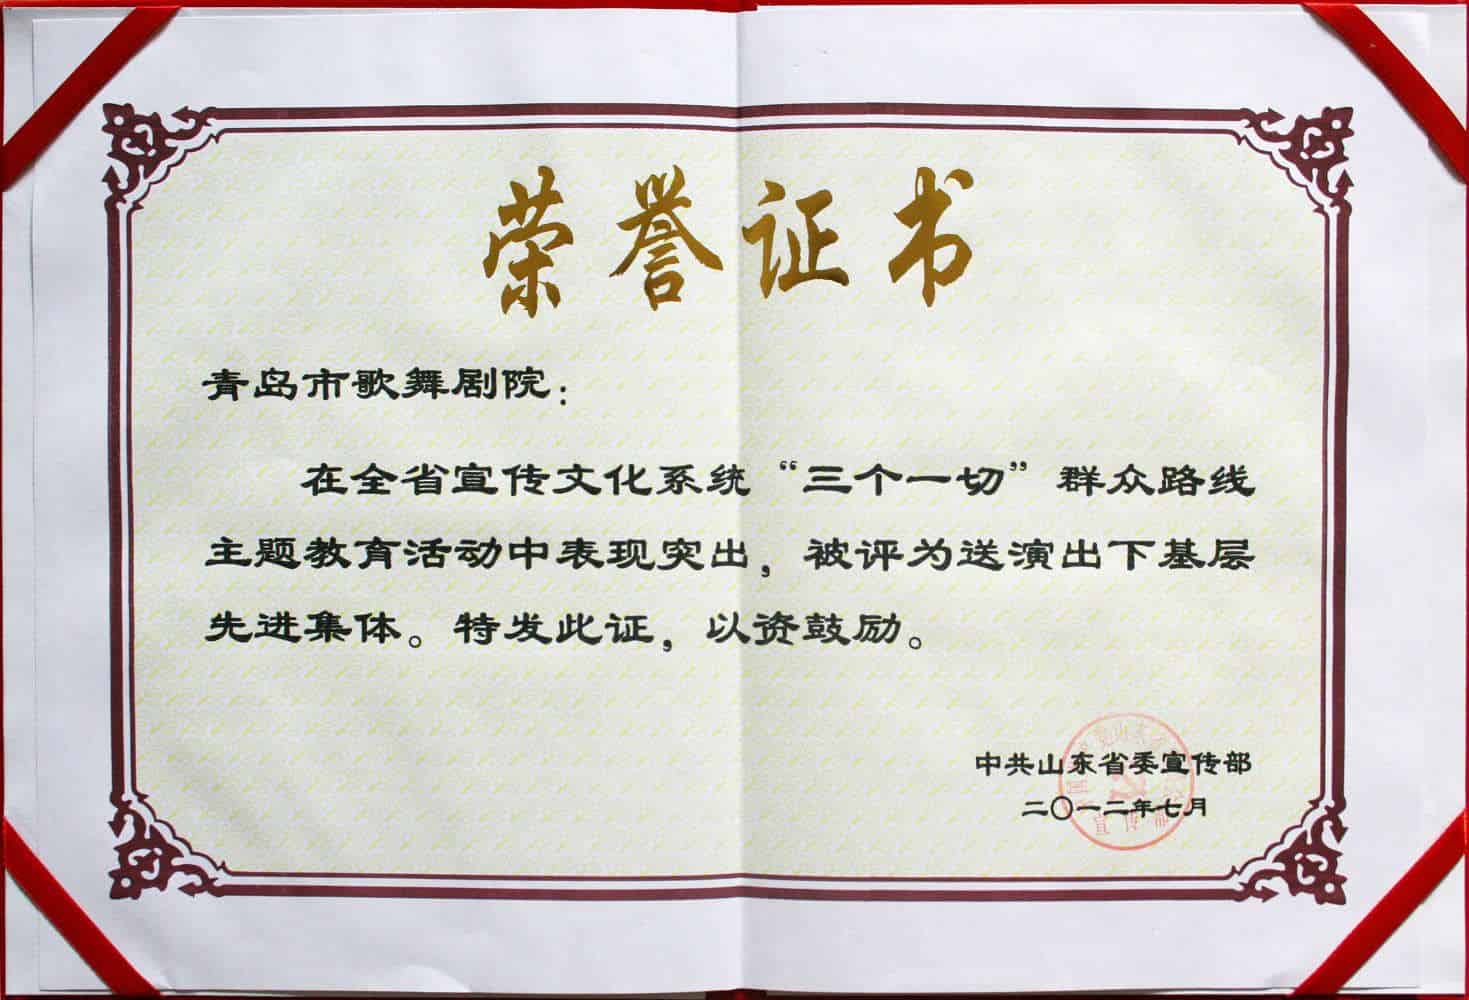 荣誉证书
青岛市歌舞剧院：
在全省宣传文化系统“三个一切”群众路线
主题教育活动中表现突出，被评为送演出下基层
先进集体。特发此证，以资鼓励。
中共山东省委宣传部
二〇一二年七月